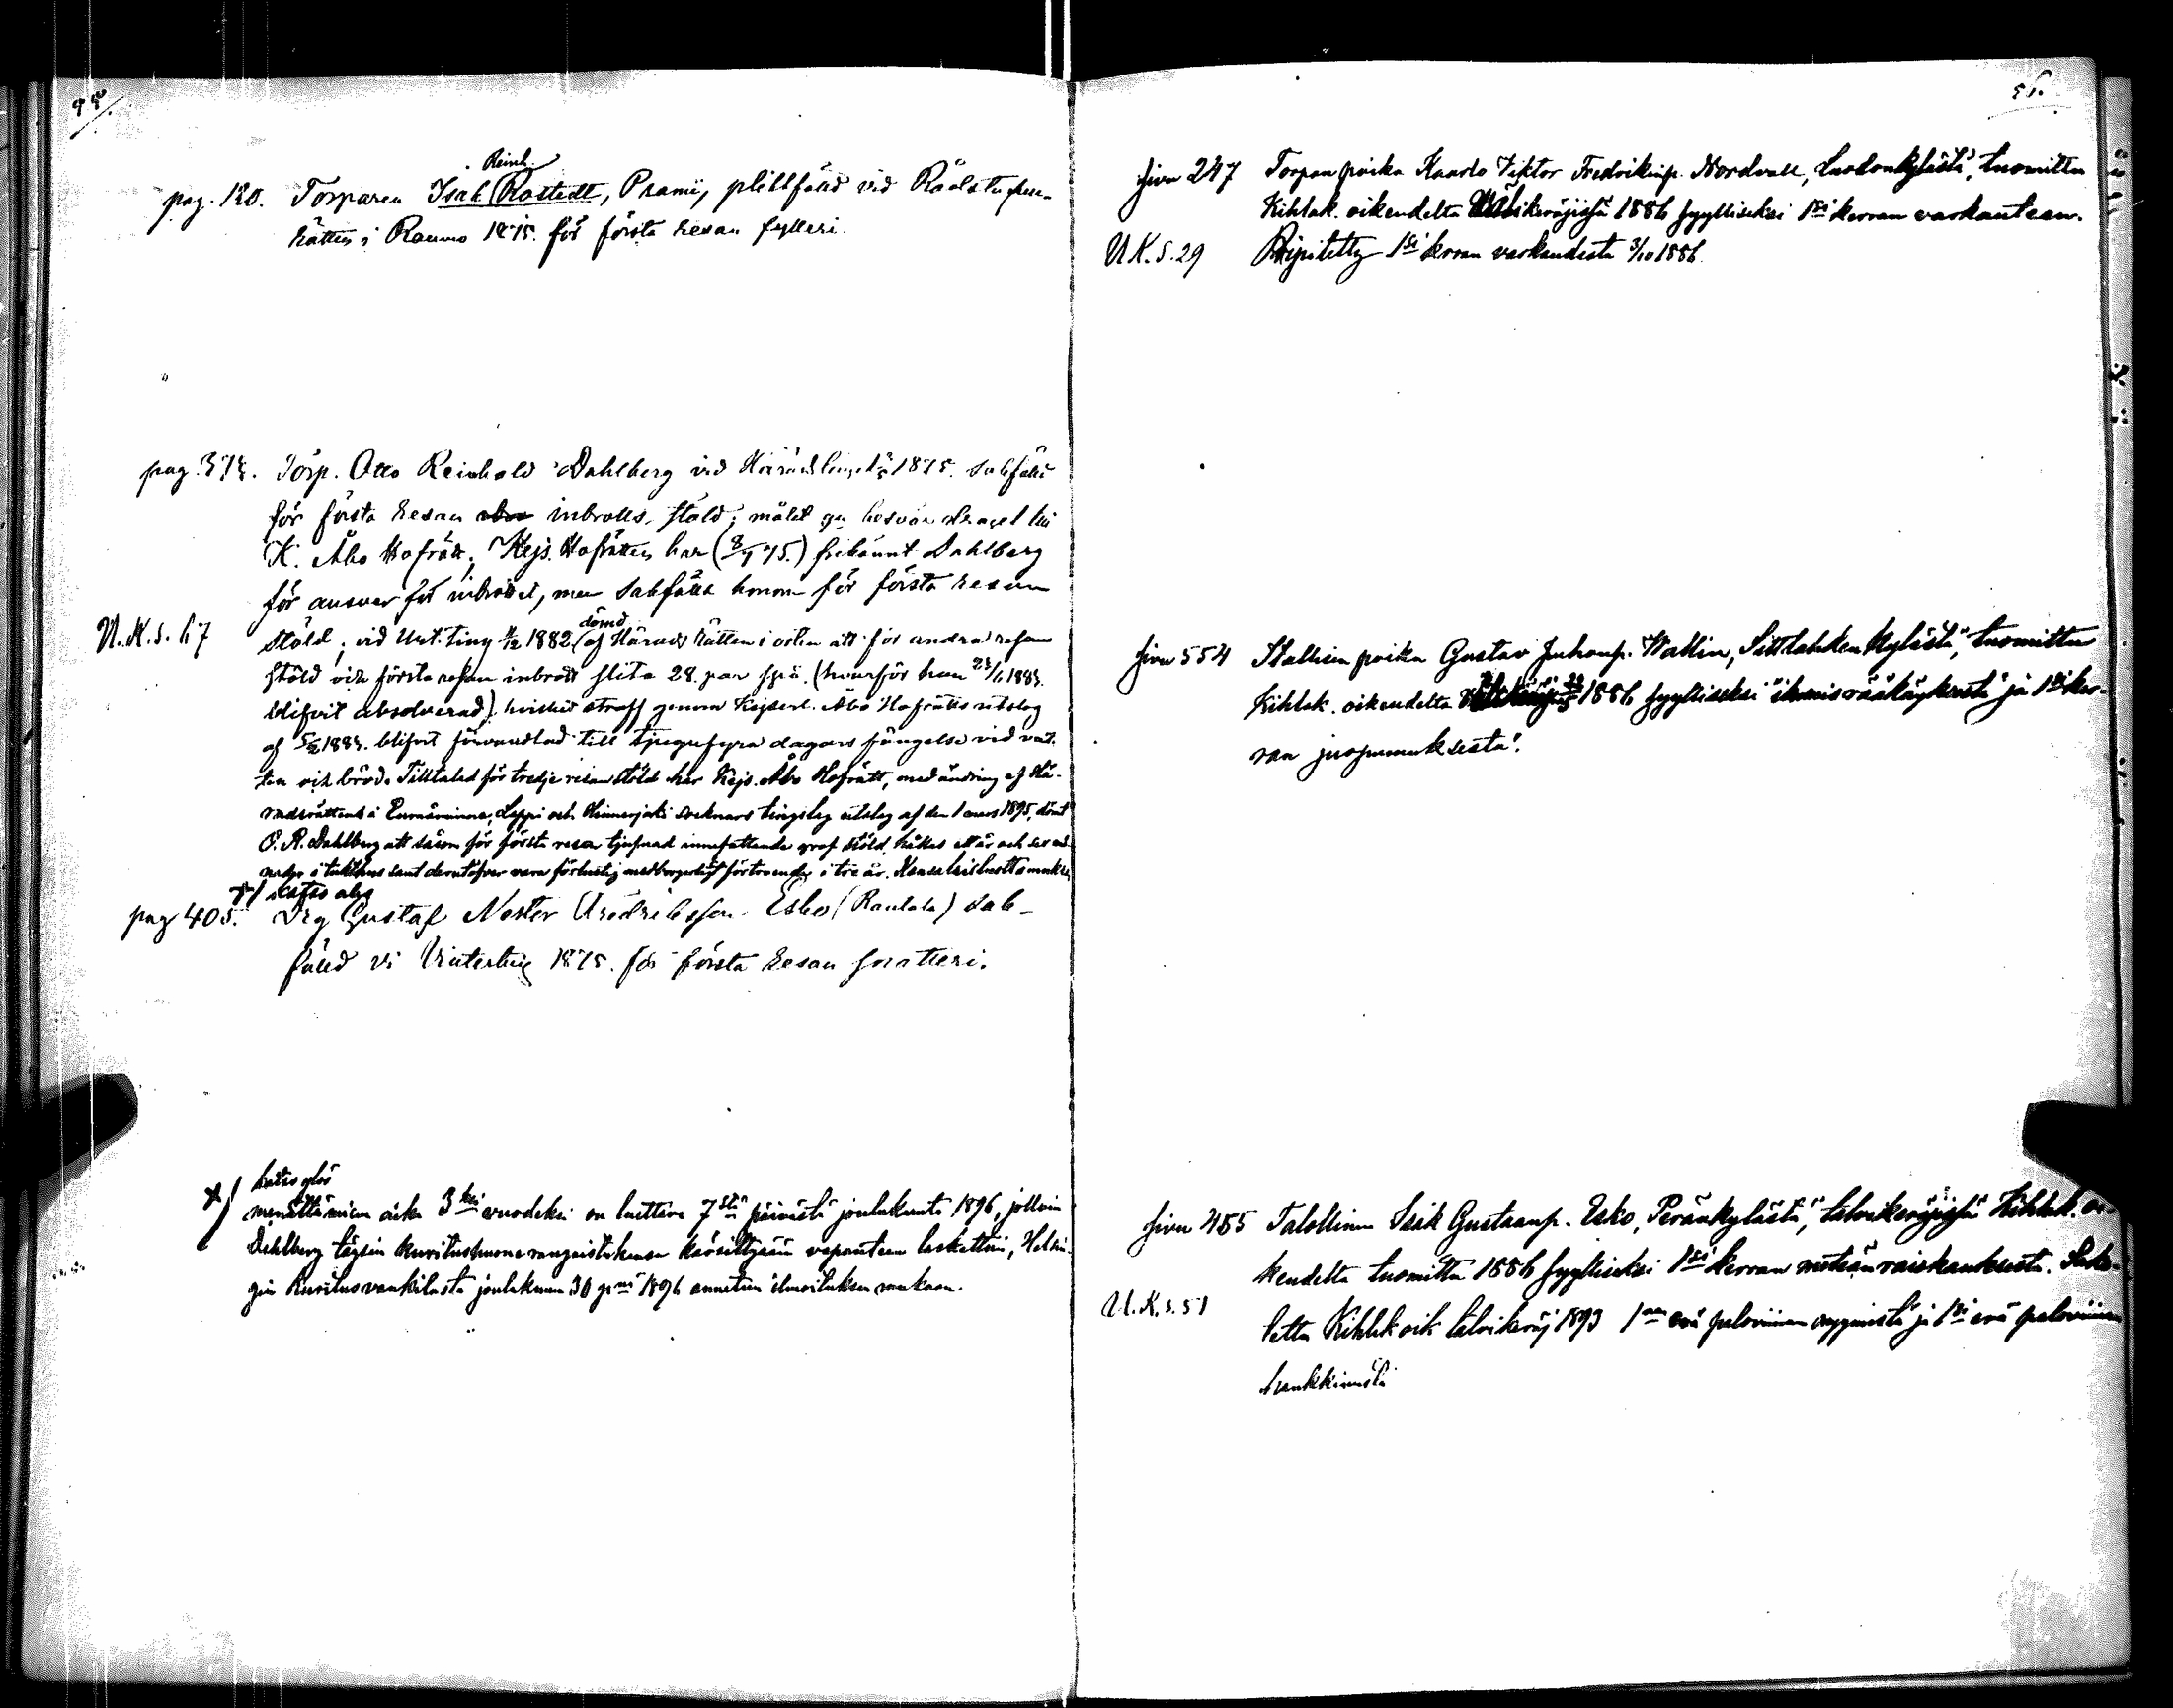 pag. 120. Torparen Isak Reinh. Rostedt, Pramii, plictfäld vid Rådstufvu-
rätten i Raumo 1875. för första resan fylleri.
pag. 373. Torp. Otto Reinhold Dahlberg vid 1875. sakfäld
för första resan inbrotts stöld; målet
K. Åbo Hofrätt; Kejs. Hofrätten har (8/7 75.) frikännt Dahlberg
för ansvar för inbrottet, men sakfälla honom för första resan
U.K.s. 67 stöld; vid 1882 dömd af Härads Rätten i orten att för andra resan
stöld och första resan inbrott slita 28. par spö. (hvarför han 23/1 1883.
blifvit absolverad). hvilket straff genom Kejserl. Åbo Hofrätts utslag
af 1883. blifvit förvandlad till tjugufyra dagars fängelse vid vat-
ten och bröd. Tilltalad för tredje resan stöld har Kejs. Åbo Hofrätt, med ändring af Hä-
radsrättens i Euraåminne, Lappi och Hinnerjoki socknars tingslag utslag af den 1 mars 1895, dömt
O. R. Dahlberg att såsom för första resan tjufnad innefattande grof stöld, hållas ett år och sex må-
nader i tukthus samt derutöfver vara förlustig medborgerligt förtroende i tre år. Kansalaisluottamuksen
x/ katso alas
pag 405. Drg Gustaf Nestor Fredriksson Esko (Rantala) sak-
fäld vi Vintertin 1875. för första resan
x/ katso ylös
menettämisen aika 3ksi vuodeksi on luettava 7stä päivästä joulukuuta 1896, jolloin
Dahlberg täysin kuritushuone rangaistuksensa kärsittyään vapauteen laskettiin, Helsin-
gin Kuritusvankilasta joulukuun 30 p:nä 1896 annetun ilmoituksen mukaan.
56.
Sivu 247 Torpan poika Kaarlo Viktor Fredrikinp. Nordvall, Luodonkylästä, tuomittu
Kihlak. oikeudelta 1886 syylliseksi 1si kerran varkauteen.
U.K.S. 29 Ripitetty 1si kerran varkaudesta 3/10 1886.
Sivu 554 Itsellisen poika Gustav Juhanp. Wallin, kylästä, tuomittu
Kihlak. oikeudelta 1886 syylliseksi ihmisrääkkäyksestä ja 1si ker-
ran juopumuksesta.
Sivu 455 Talollinen Isak Gustaanp. Esko, Peränkylästä, talvikeräjissä Kihlak. oi-
keudelta tuomittu 1886 syylliseksi 1si kerran metsän raiskauksesta.
U.K.s. 51 Kihlk oik talvikäräj 1893 1sen erä paloviinan myymistä ja 1si erä paloviinan
hankkimista